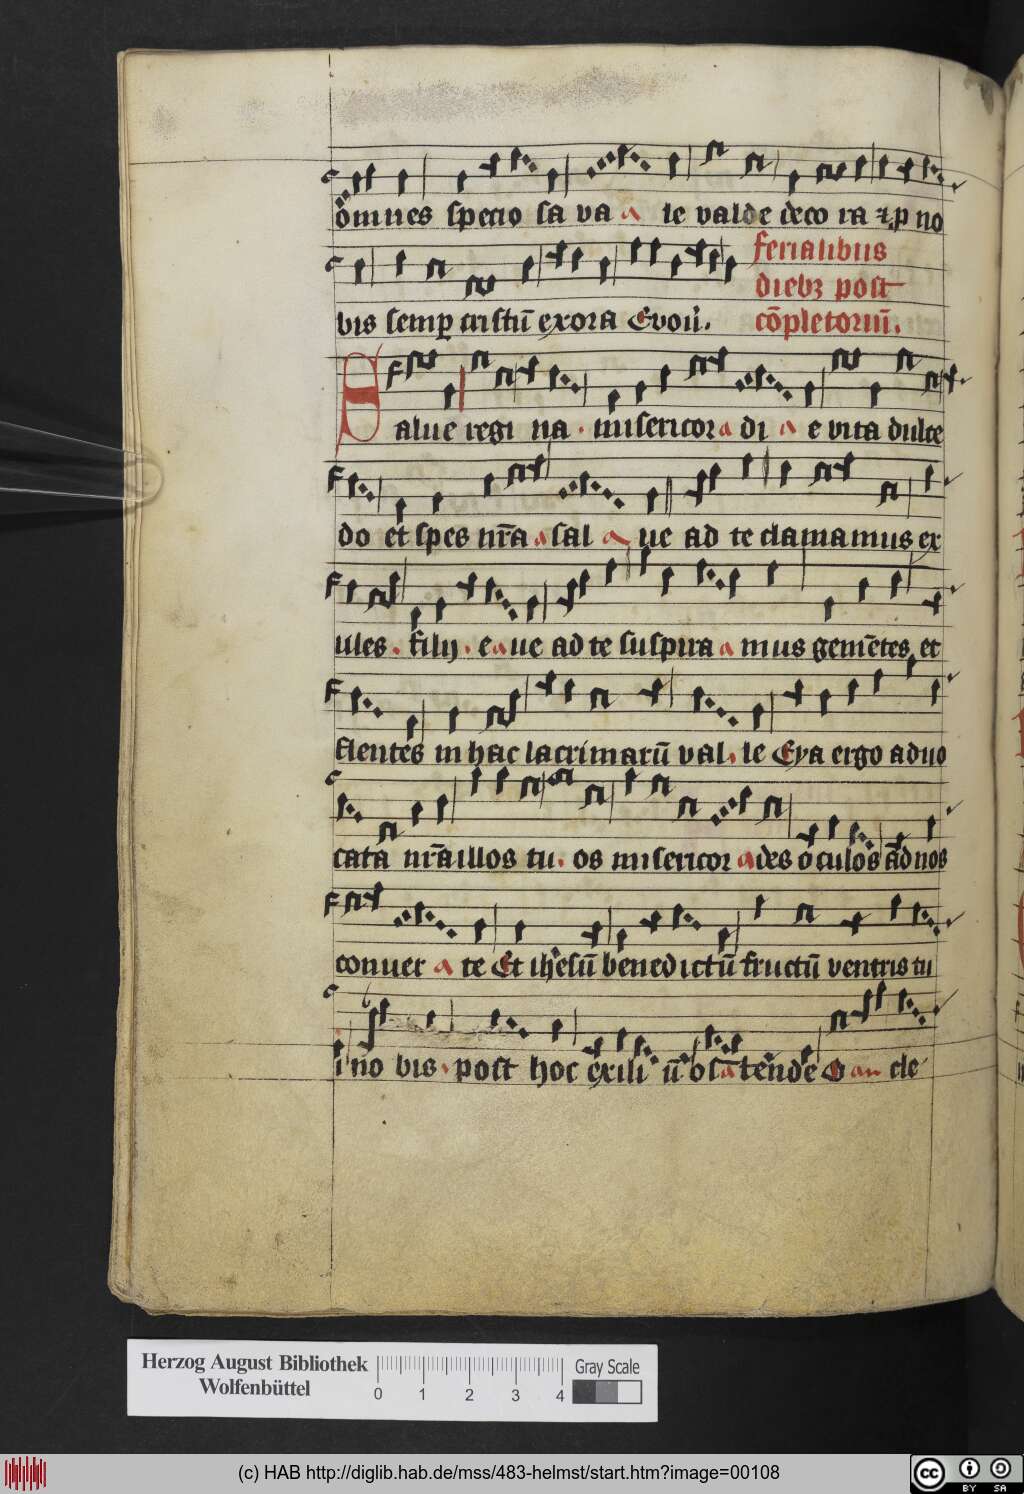 omnes specio sa va a le valde deco ra et p no
bis semp cristū exora Evoū.
ferialibus
diebz post
cōpletoriū.
Salue regi na · misericor a di a e vita dulce
do et spes nr̄a a sal a ue ad te clamamus ex
ules . filij . e a ue ad te suspira a mus gemētes et
flentes in hac lacrimarū val . le Eya ergo aduo
cata nr̄a illos tu . os misericor a des oculos ad nos
conuer a te Et ihesū benedictū fructū ventris tu
i no bis . post hoc exili ū os a tende O an cle
Herzog August Bibliothek
Wolfenbüttel
0 1 2 3 4
Gray Scale
(c) HAB http://diglib.hab.de/mss/483-helmst/start.htm?image=00108
cc BY SA